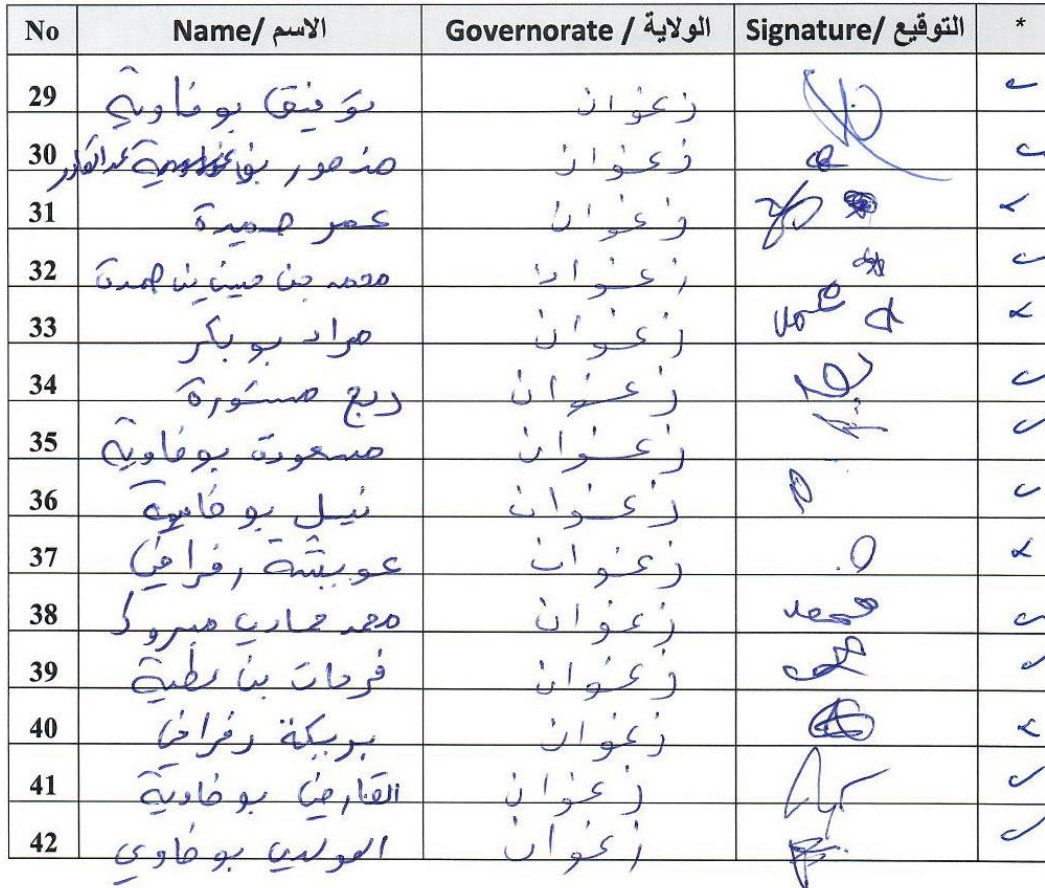 No الاسم /Name الولاية / Governorate التوقيع /Signature *
29 توفيق بوفاوية زغوان
30 منصور بن عبد القادر زغوان
31 عمر حميدة زغوان
32 محمد بن بن حمدة زغوان
33 مراد بوبكر زغوان
34 ربح مستورة زغوان
35 مسعودة بوفاوية زغوان
36 نبيل بوفاوية زغوان
37 عويشة رفرافي زغوان
38 محمد مبروك زغوان
39 فرحات بن عطية زغوان
40 بريكة رفرافي زغوان
41 بوفاوية زغوان
42 بوفاوي زغوان